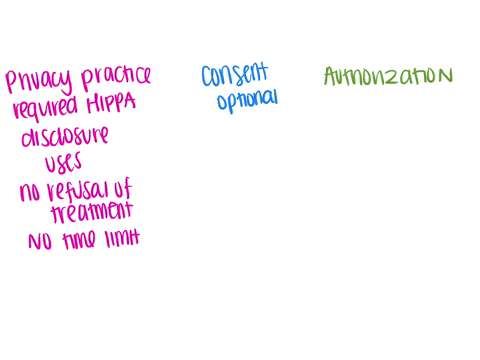 Privacy practice
required HIPPA
disclosure
uses
no refusal of
treatment
No time limit
Consent
optional
Authorization